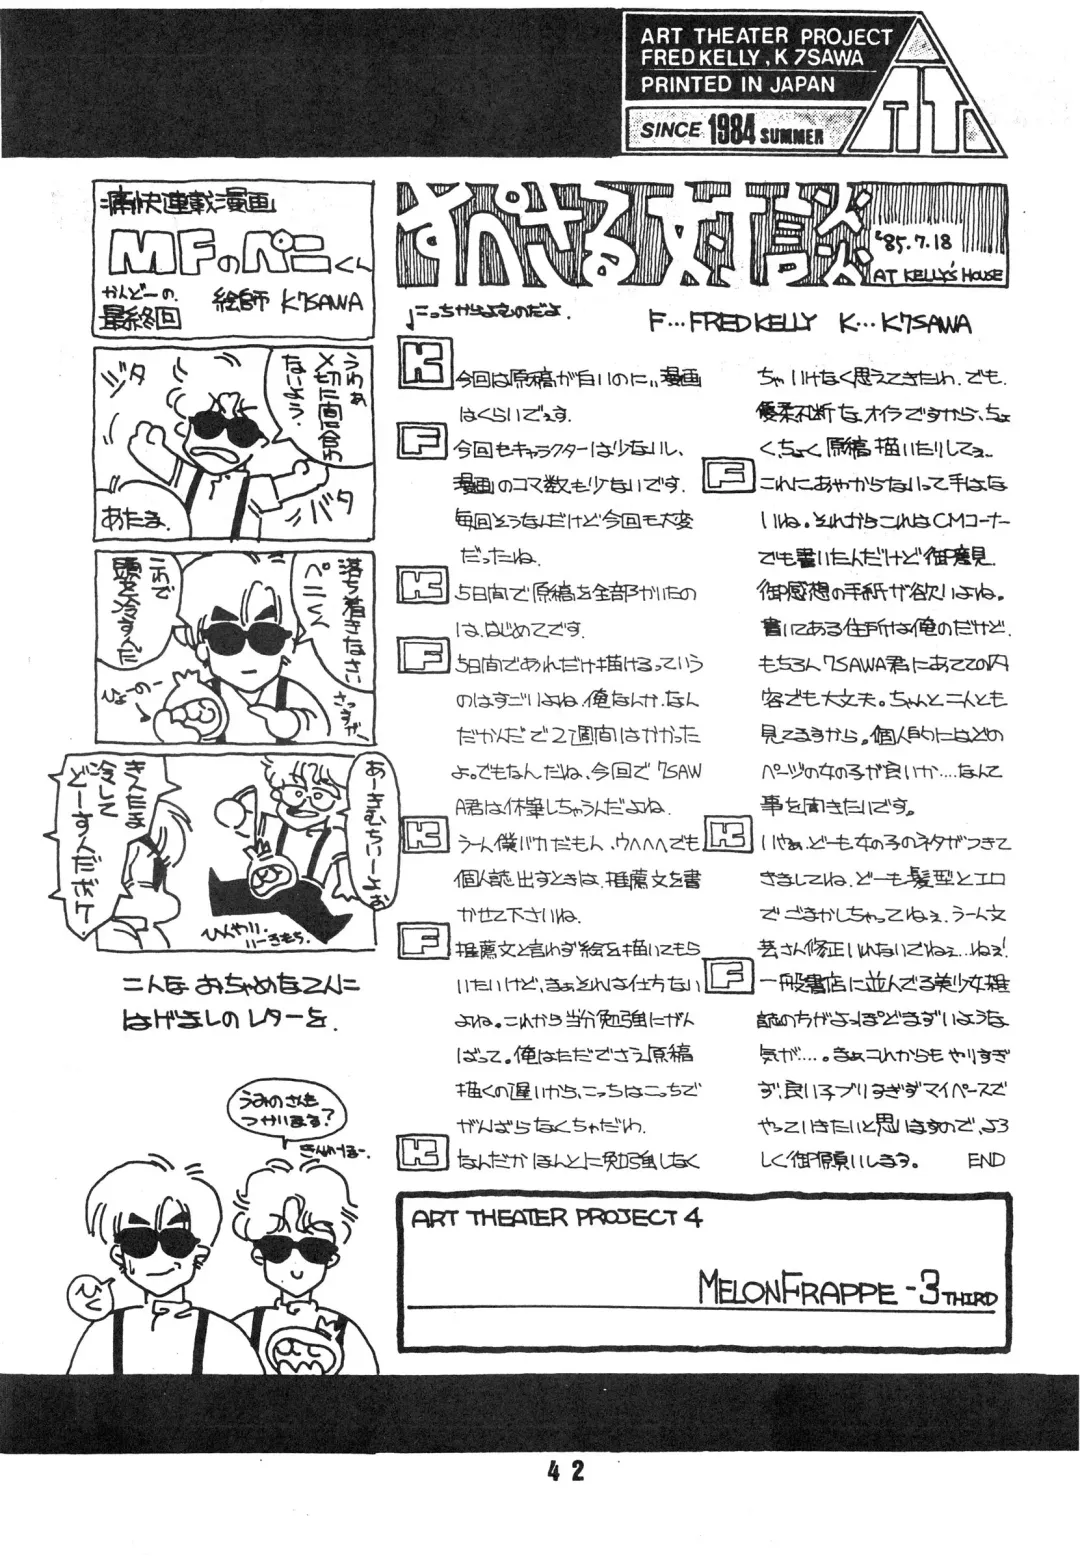 ART THEATER PROJECT
FRED KELLY, K 7SAWA
PRINTED IN JAPAN
SINCE 1984 SUMMER
痛快連載漫画
MFのペニくん
かんどーの
最終回
絵師 K7SAWA
うわぁ
〆切に間合わ
ないよう
ジタ
バタ
あたま.
落ち着きなさい
ペニくん
これで
頭を冷すんだ
ひょーのー
さっすが
あーきむちいーよお
ひんやり.
いーきもち.
きんたま
冷して
どーすんだボケ.
こんな おちゃめなてんに
はげましのレターを.
うみのさんも
つかいます?
ひく
すぺさる対談
'85.7.18
AT KELLY'S HOUSE
♩こっちからよむのだよ.
F…FRED KELLY K…K7SAWA
K
今回は原稿が白いのに〃漫画
はくらいでぇす.
F
今回もキャラクターは少ないし、
漫画のコマ数も少ないです.
毎回そうなんだけど今回も大変
だったね.
K
5日間で原稿を全部かいたの
は、はじめてです.
F
5日間であれだけ描けるっていう
のはすごいよね.俺なんか、なん
だかんだで2週間はかかった
よ。でもなんだね、今回で7SAW
A君は休筆しちゃうんだよね.
K
うーん僕バカだもん、ウヘヘヘでも
個人誌出すときは、推薦文を書
かせて下さいね.
F
推薦文と言わず絵を描いてもら
いたいけど、まぁそれは仕方ない
よね。これから当分勉強にがん
ばって。俺はただでさえ原稿
描くの遅いから、こっちはこっちで
がんばらなくちゃだわ.
K
なんだかほんとに勉強しなく
ちゃいけなく思えてきたわ.でも.
優柔不断な、オイラですから、ちょ
くちょく原稿描いたりしてぇ~
F
これにあやからないって手はな
いね。それからこれはCMコーナー
でも書いたんだけど御意見
御感想の手紙が欲いよね。
書いてある住所は俺のだけど.
もちろん7SAWA君にあてての内
容でも大丈夫。ちゃんと二人とも
見てますから。個人的にはどの
ページの女の子が良いか….なんて
事を聞きたいです。
K
いやぁ、どーも女の子のネタがつきて
きましてね.どーも髪型とエロ
でごまかしちゃってねぇ.うーん文
芸さん修正いれないでねぇ…ねぇ!
F
一般書店に並んでる美少女雑
誌の方がよっぽどまずいような
気が….。まぁこれからもやりすぎ
ず、良い子ブリすぎずマイペースで
やっていきたいと思いますので、よろ
しく御願いします。 END
ART THEATER PROJECT 4
MELONFRAPPE -3 THIRD
42